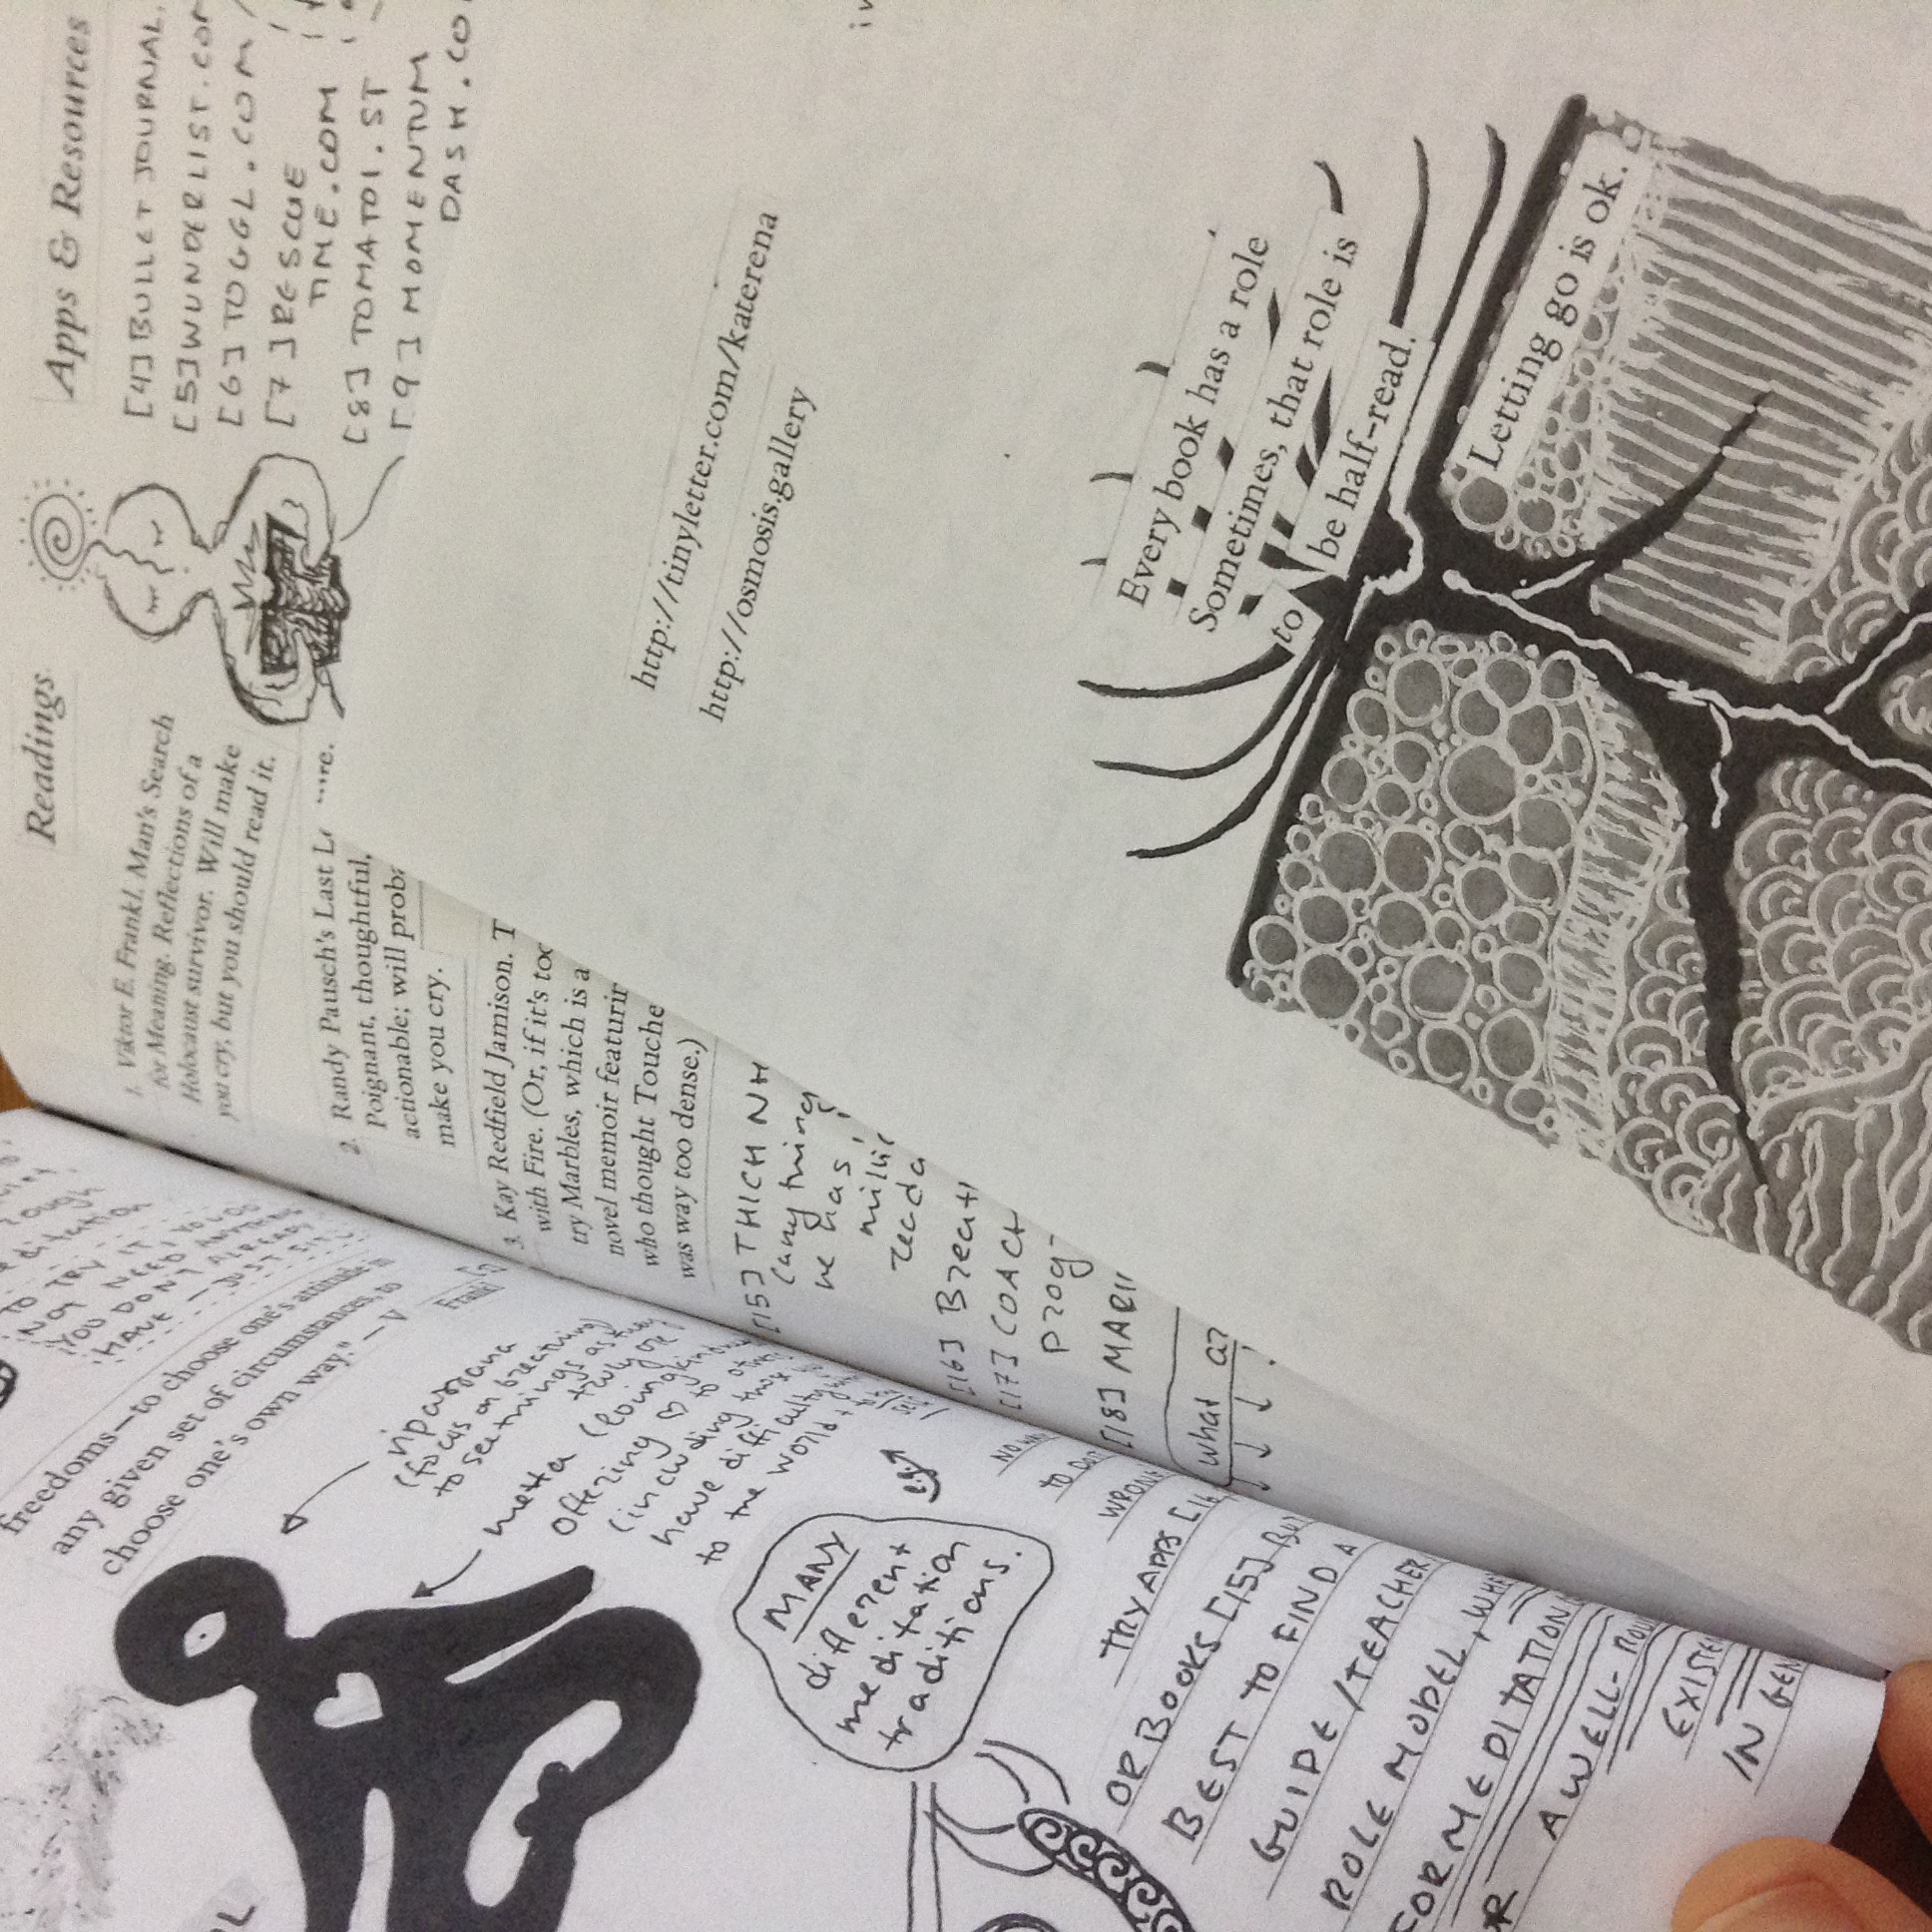 freedoms—to choose one's attitude in
any given set of circumstances, to
choose one's own way." — V
Frankl
TO TRY IT! YOU DO
NOT NEED ANYTHING
YOU DON'T ALREADY
HAVE — JUST SIT
vipassana
(focus on breathing)
to see things as they
truly are
metta (loving kindness
offering ♡ to others
(including those
have difficulty
to the world +
MANY
different
meditation
traditions.
e.g.
NO WAY
TO DO IT
WRONG
TRY APPS [16
OR BOOKS [15] BUT
BEST TO FIND A
GUIDE/TEACHER
ROLE MODEL, WHE
FOR MEDITATION
OR
A WELL-ROU
EXISTEN
IN GEN
Readings
1. Viktor E. Frankl. Man's Search
for Meaning. Reflections of a
Holocaust survivor. Will make
you cry, but you should read it.
2. Randy Pausch's Last Le ure.
Poignant, thoughtful,
actionable; will proba
make you cry.
3. Kay Redfield Jamison. T
with Fire. (Or, if it's too
try Marbles, which is a
novel memoir featurin
who thought Touche
was way too dense.)
[15] THICH NH
(anything
he has,
milli
reada
[16] Breath
[17] COACH
prog
[18] MARI
what ar
Apps & Resources
[4] BULLET JOURNAL.
[5] WUNDERLIST.COM
[6] TOGGL.COM /
[7] RESCUE
TIME.COM
[8] TOMATOI.ST
[9] MOMENTUM
DASH.CO
http://tinyletter.com/katerena
http://osmosis.gallery
Every book has a role
Sometimes, that role is
to be half-read.
Letting go is ok.